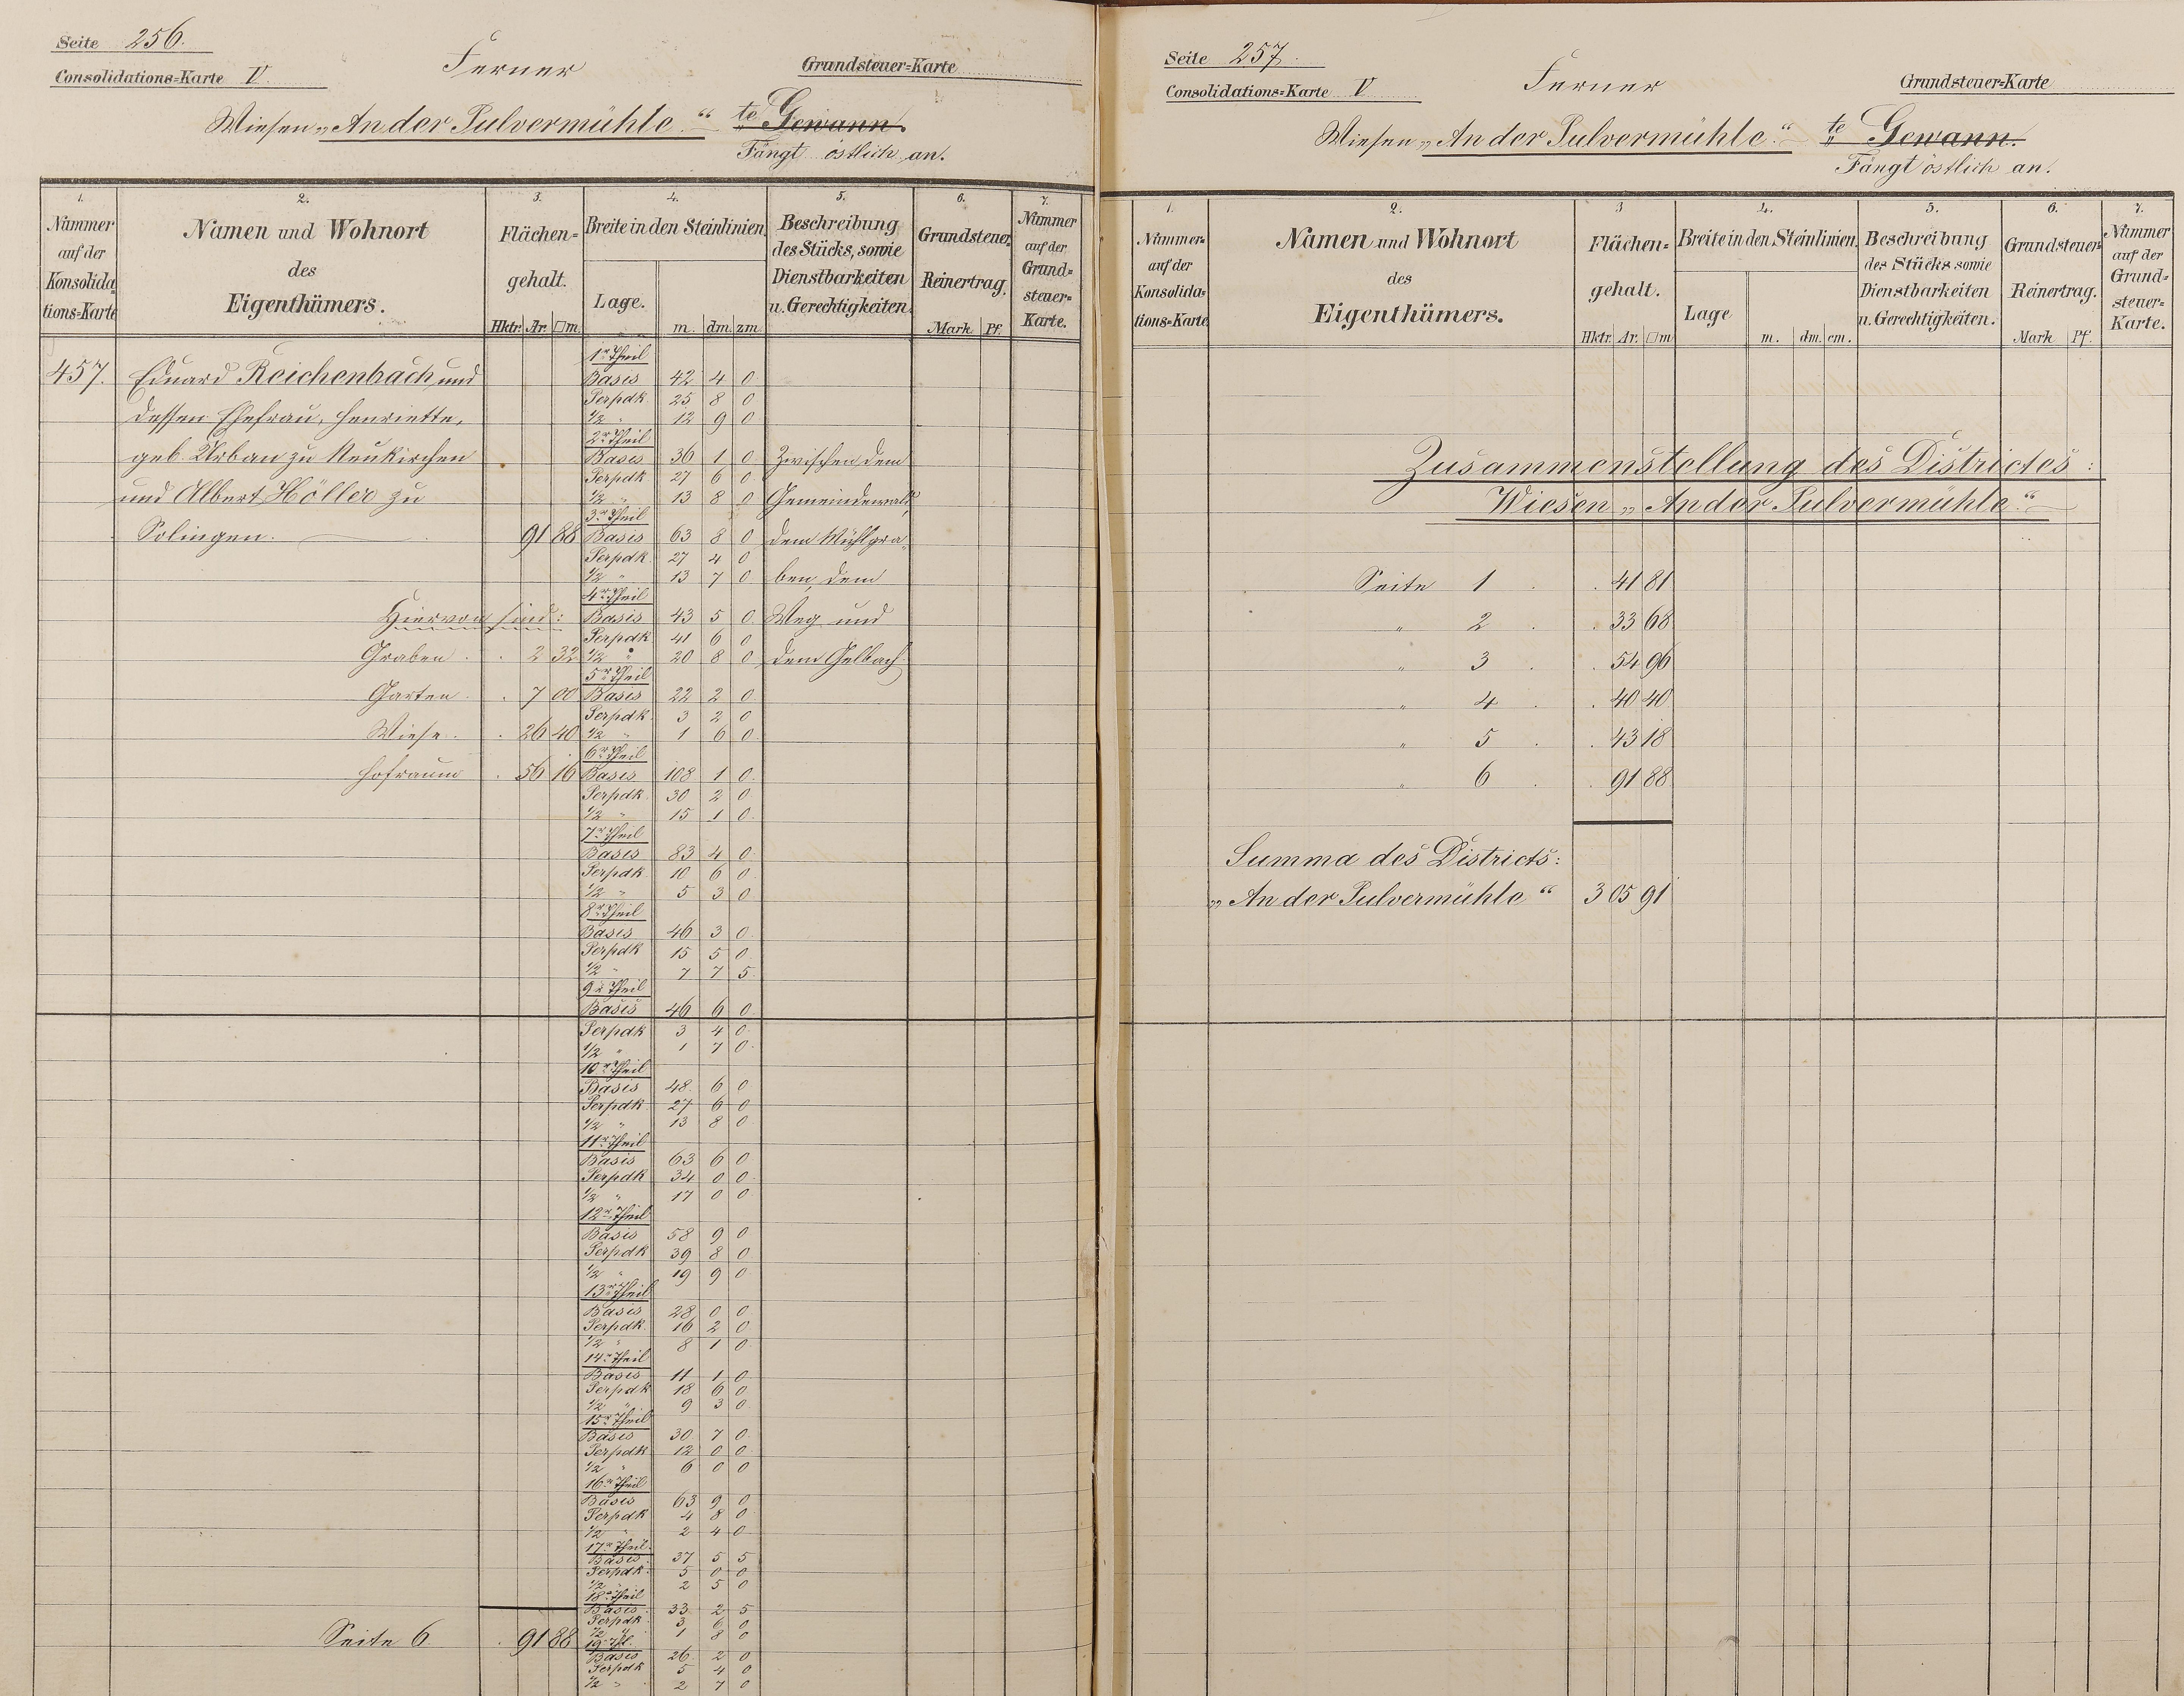 Seite 256.
Consolidations=Karte V.
Ferner
Grundsteuer=Karte
Wiesen „An der Pulvermühle“ te Gewann.
Fängt östlich an.
1. 2. 3. 4. 5. 6. 7.
Nummer auf der Konsolida=tions=Karte
Namen und Wohnort des Eigenthümers.
Flächen=gehalt.
Hktr. Ar. □m
Breite in den Steinlinien.
Lage. m. dm. zm.
Beschreibung des Stücks, sowie Dienstbarkeiten u. Gerechtigkeiten.
Grundsteuer Reinertrag.
Mark Pf.
Nummer auf der Grund=steuer=Karte.
1r. Theil
457. Eduard Reichenbach und Basis 42 4 0
Perpdk. 25 8 0
dessen Ehefrau, Henriette, 1/2 " 12 9 0
2r. Theil
geb. Urban zu Neukirchen Basis 36 1 0 Zwischen dem
Perpdk. 27 6 0
und Albert Höller zu 1/2 " 13 8 0 Gemeindewald,
3r. Theil
Solingen. 91 88 Basis 63 8 0 dem Mühlgra=
Perpdk. 27 4 0
1/2 " 13 7 0 ben, dem
4r. Theil
Hiervon sind: Basis 43 5 0 Weg und
Perpdk 41 6 0
Graben . . 2 32 1/2 " 20 8 0 dem Gelbach
5r. Theil
Garten . . 7 00 Basis 22 2 0
Perpdk. 3 2 0
Wiese . . 26 40 1/2 " 1 6 0
6r. Theil
Hofraum . 56 16 Basis 108 1 0
Perpdk. 30 2 0
1/2 " 15 1 0
7r. Theil
Basis 83 4 0
Perpdk. 10 6 0
1/2 " 5 3 0
8r. Theil
Basis 46 3 0
Perpdk 15 5 0
1/2 " 7 7 5
9r. Theil
Basis 46 6 0
Perpdk 3 4 0
1/2 " 1 7 0
10r. Theil
Basis 48 6 0
Perpdk. 27 6 0
1/2 " 13 8 0
11r. Theil
Basis 63 6 0
Perpdk 34 0 0
1/2 " 17 0 0
12r. Theil
Basis 58 9 0
Perpdk 39 8 0
1/2 " 19 9 0
13r. Theil
Basis 28 0 0
Perpdk. 16 2 0
1/2 " 8 1 0
14r. Theil
Basis 11 1 0
Perpdk 18 6 0
1/2 " 9 3 0
15r. Theil
Basis 30 7 0
Perpdk 12 0 0
1/2 " 6 0 0
16r. Theil
Basis 63 9 0
Perpdk 4 8 0
1/2 " 2 4 0
17r. Theil
Basis 37 5 5
Perpdk. 5 0 0
1/2 " 2 5 0
18r. Theil
Basis 33 2 5
Perpdk 3 6 0
1/2 " 1 8 0
Seite 6. . 91 88 19r. Thl.
Basis 26 2 0
Perpdk 5 4 0
1/2 " 2 7 0
Seite 257.
Consolidations=Karte V
Ferner
Grundsteuer=Karte
Wiesen „An der Pulvermühle“ te Gewann.
Fängt östlich an.
1. 2. 3 4. 5. 6. 7.
Nummer auf der Konsolida=tions=Karte
Namen und Wohnort des Eigenthümers.
Flächen=gehalt.
Hktr. Ar. □m
Breite in den Steinlinien.
Lage m. dm. cm.
Beschreibung des Stücks sowie Dienstbarkeiten u. Gerechtigkeiten.
Grundsteuer Reinertrag.
Mark Pf.
Nummer auf der Grund=steuer=Karte.
Zusammenstellung des Districtes:
Wiesen „An der Pulvermühle“
Seite 1 . . 41 81
" 2 . . 33 68
" 3 . . 54 96
" 4 . . 40 40
" 5 . . 43 18
" 6 . . 91 88
Summa des Districts:
„An der Pulvermühle“ 3 05 91